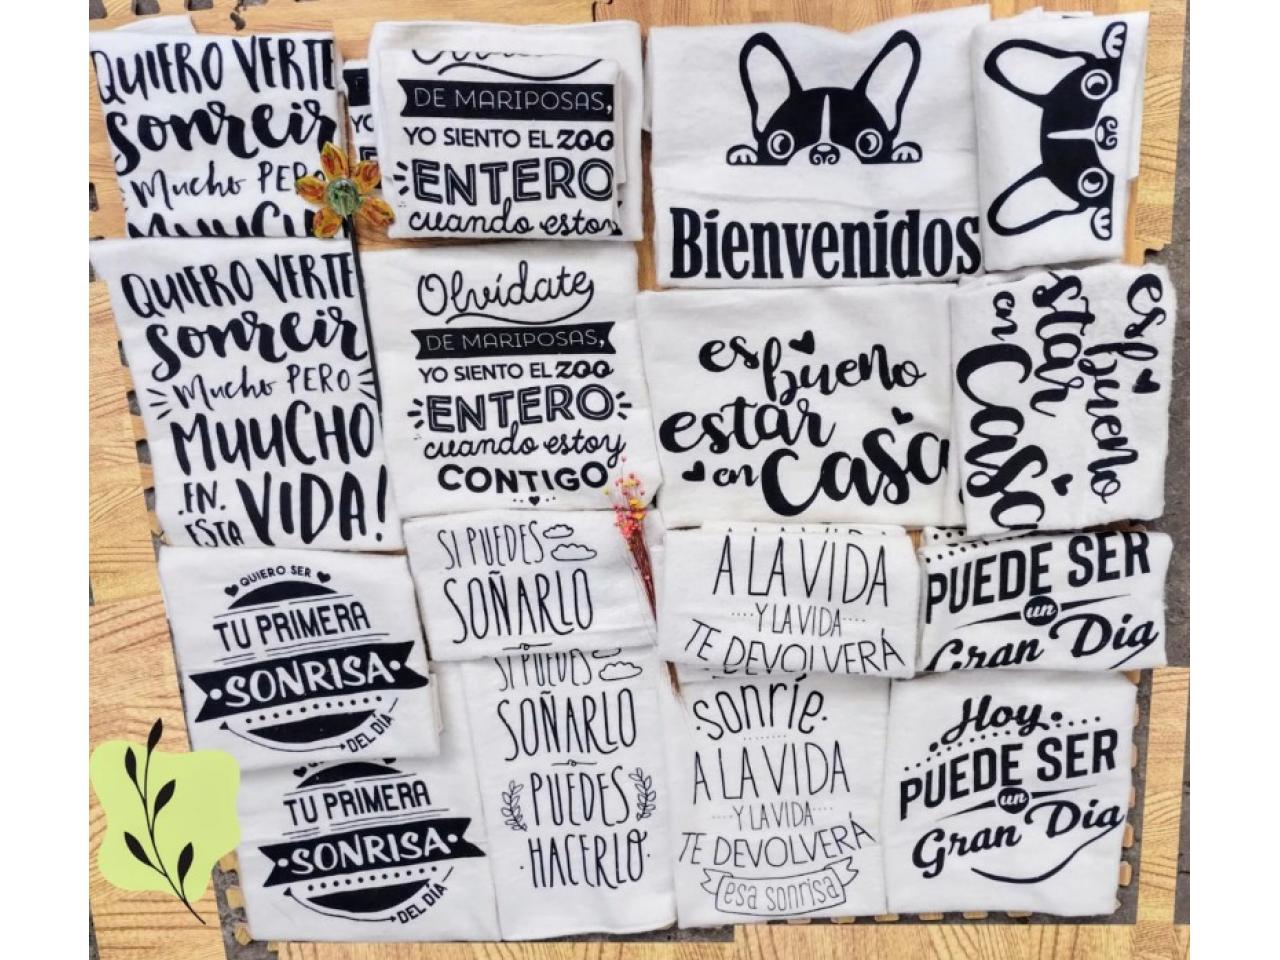 QUIERO VERTE
sonreír
Mucho PERO
MUUCHO
DE MARIPOSAS,
YO SIENTO EL ZOO
ENTERO
cuando estoy
Bienvenidos
QUIERO VERTE
sonreír
Mucho PERO
MUUCHO
EN
ESTA VIDA!
Olvídate
DE MARIPOSAS,
YO SIENTO EL ZOO
ENTERO
cuando estoy
CONTIGO
es bueno
estar
en Casa
es bueno
estar
en Casa
QUIERO SER
TU PRIMERA
SONRISA
DEL DÍA
SI PUEDES
SOÑARLO
A LA VIDA
Y LA VIDA
TE DEVOLVERÁ
PUEDE SER
un
Gran Día
TU PRIMERA
SONRISA
DEL DÍA
SI PUEDES
SOÑARLO
PUEDES
HACERLO
sonríe
A LA VIDA
Y LA VIDA
TE DEVOLVERÁ
esa sonrisa
Hoy
PUEDE SER
un
Gran Día